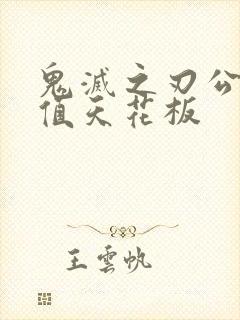 鬼滅之刃公
值天花板
王雲帆